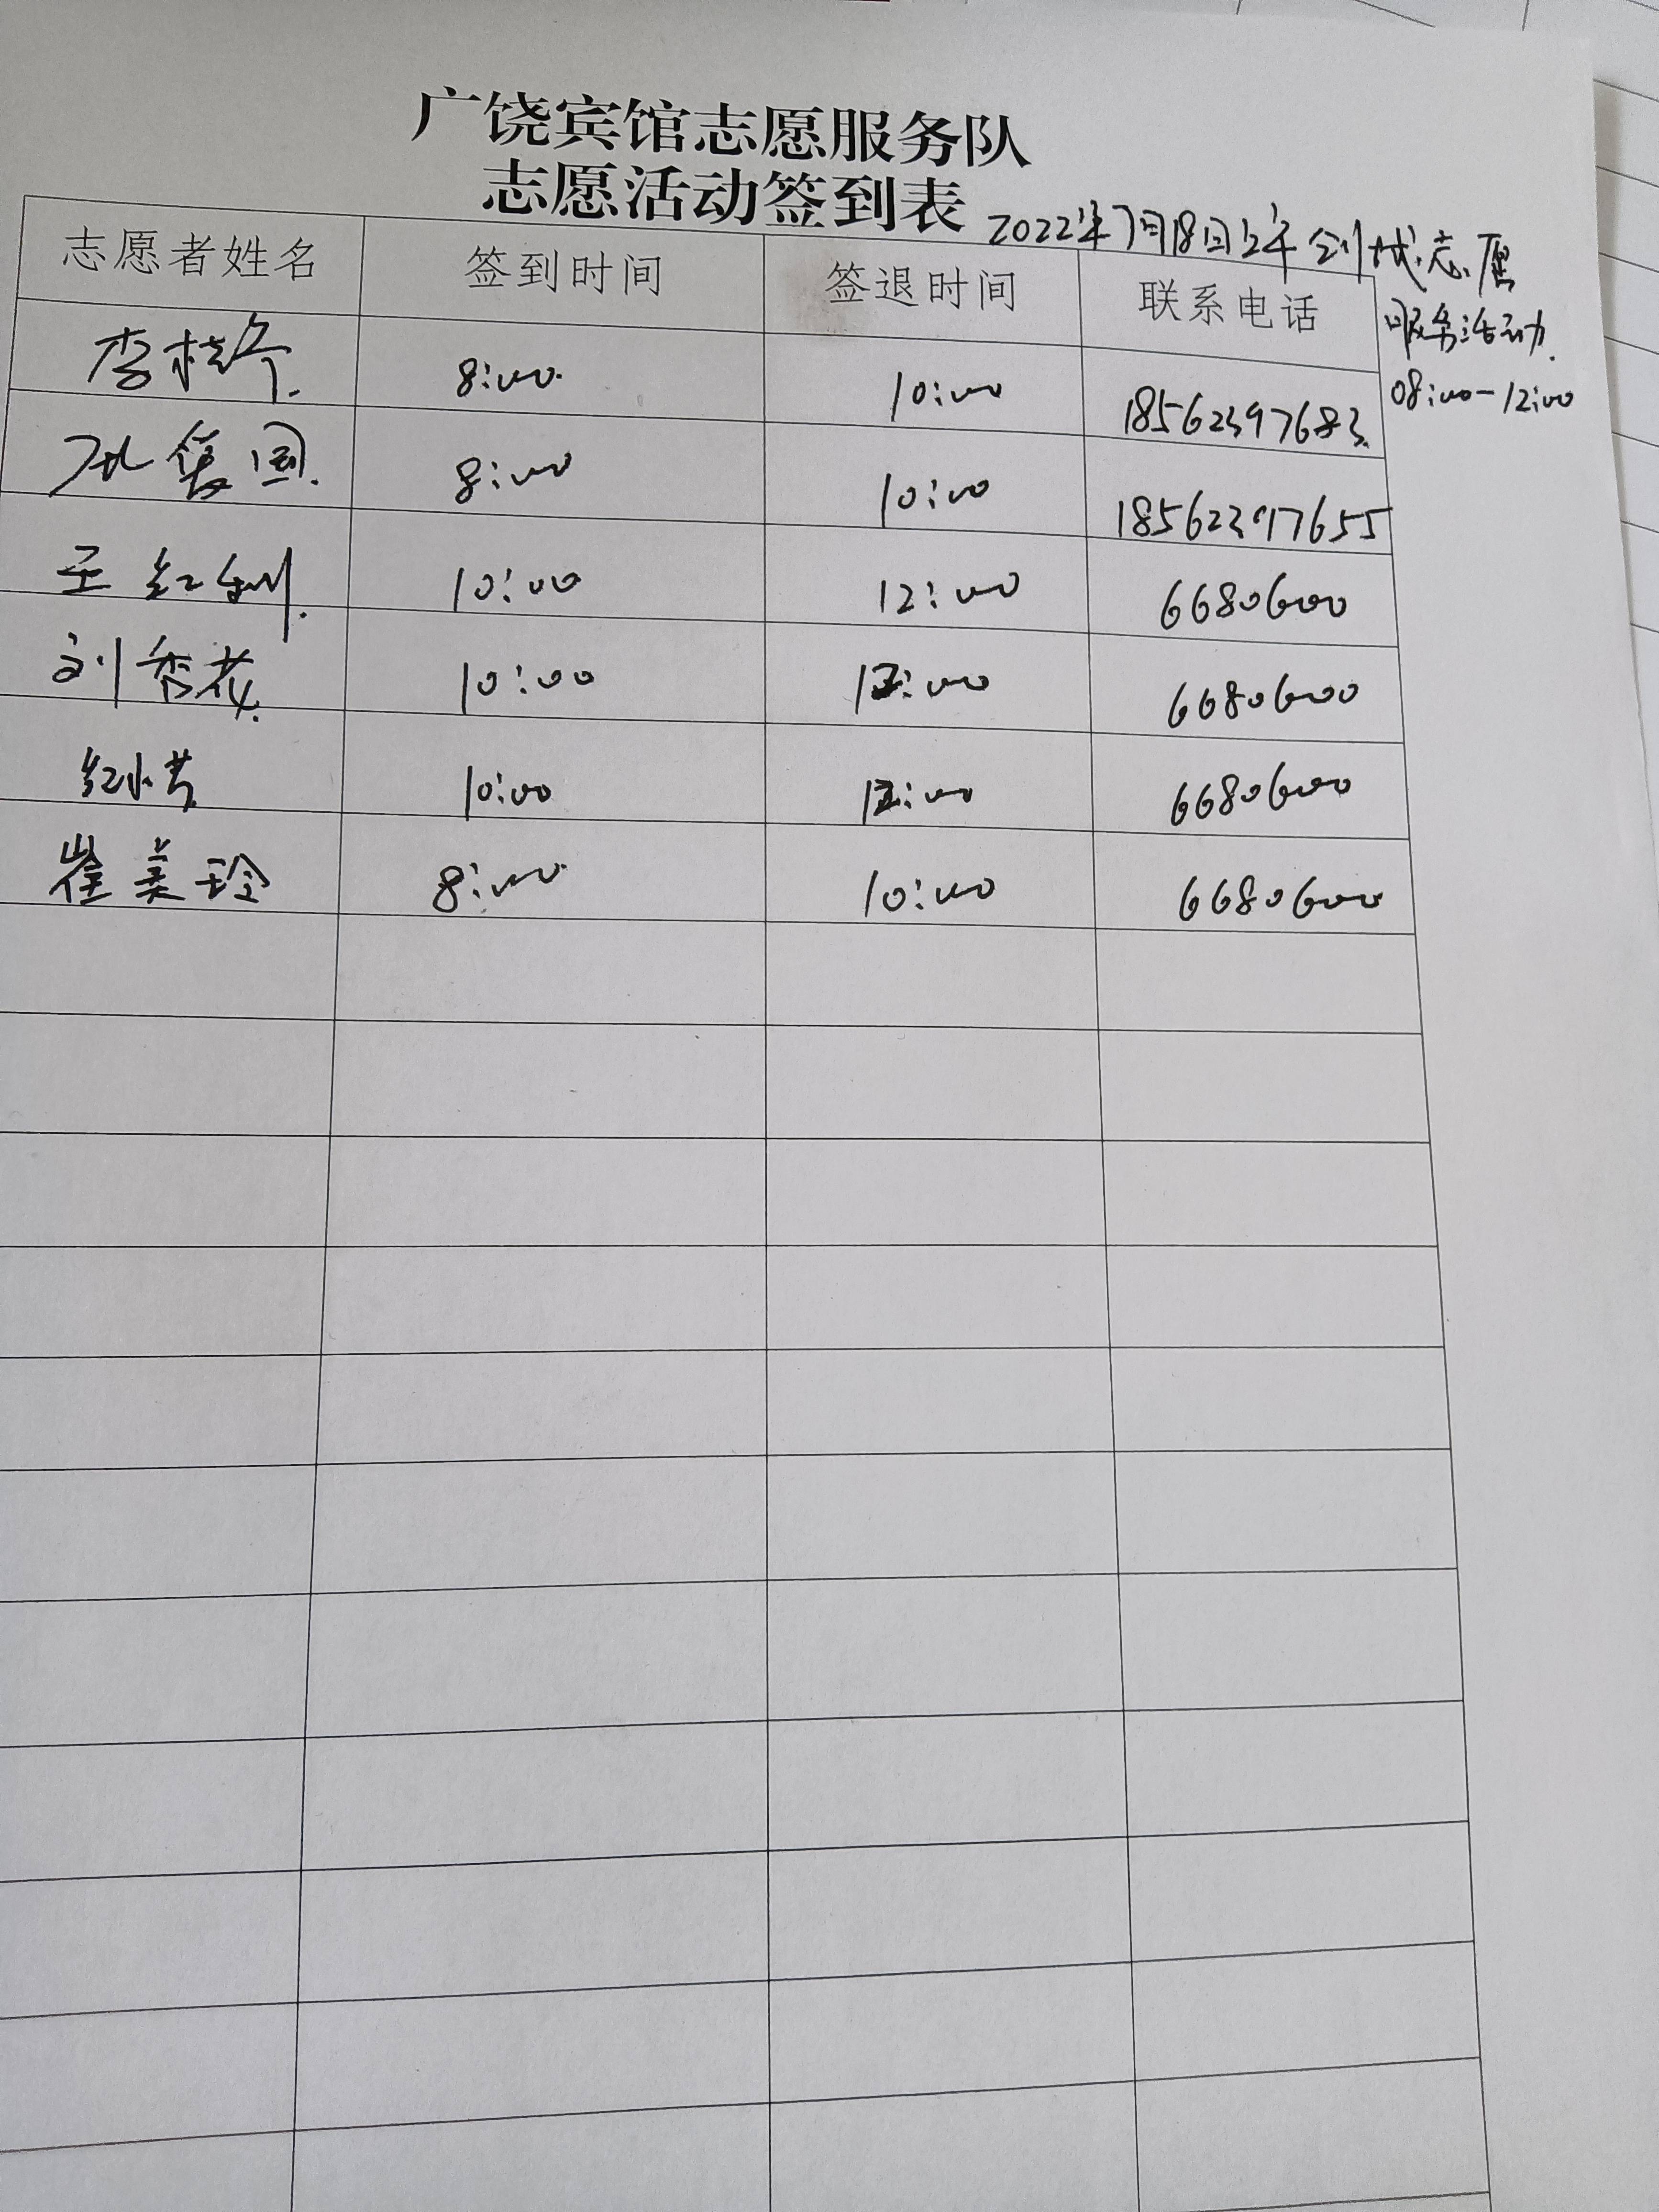 广饶宾馆志愿服务队
志愿活动签到表 2022年7月18日上午创城志愿
服务活动.
08:00-12:00
志愿者姓名 签到时间 签退时间 联系电话
李桂 8:00. 10:00 18562397683.
国. 8:00 10:00 18562397655
王红. 10:00 12:00 6680600
刘秀花. 10:00 12:00 6680600
红小 10:00 12:00 6680600
崔美玲 8:00 10:00 6680600